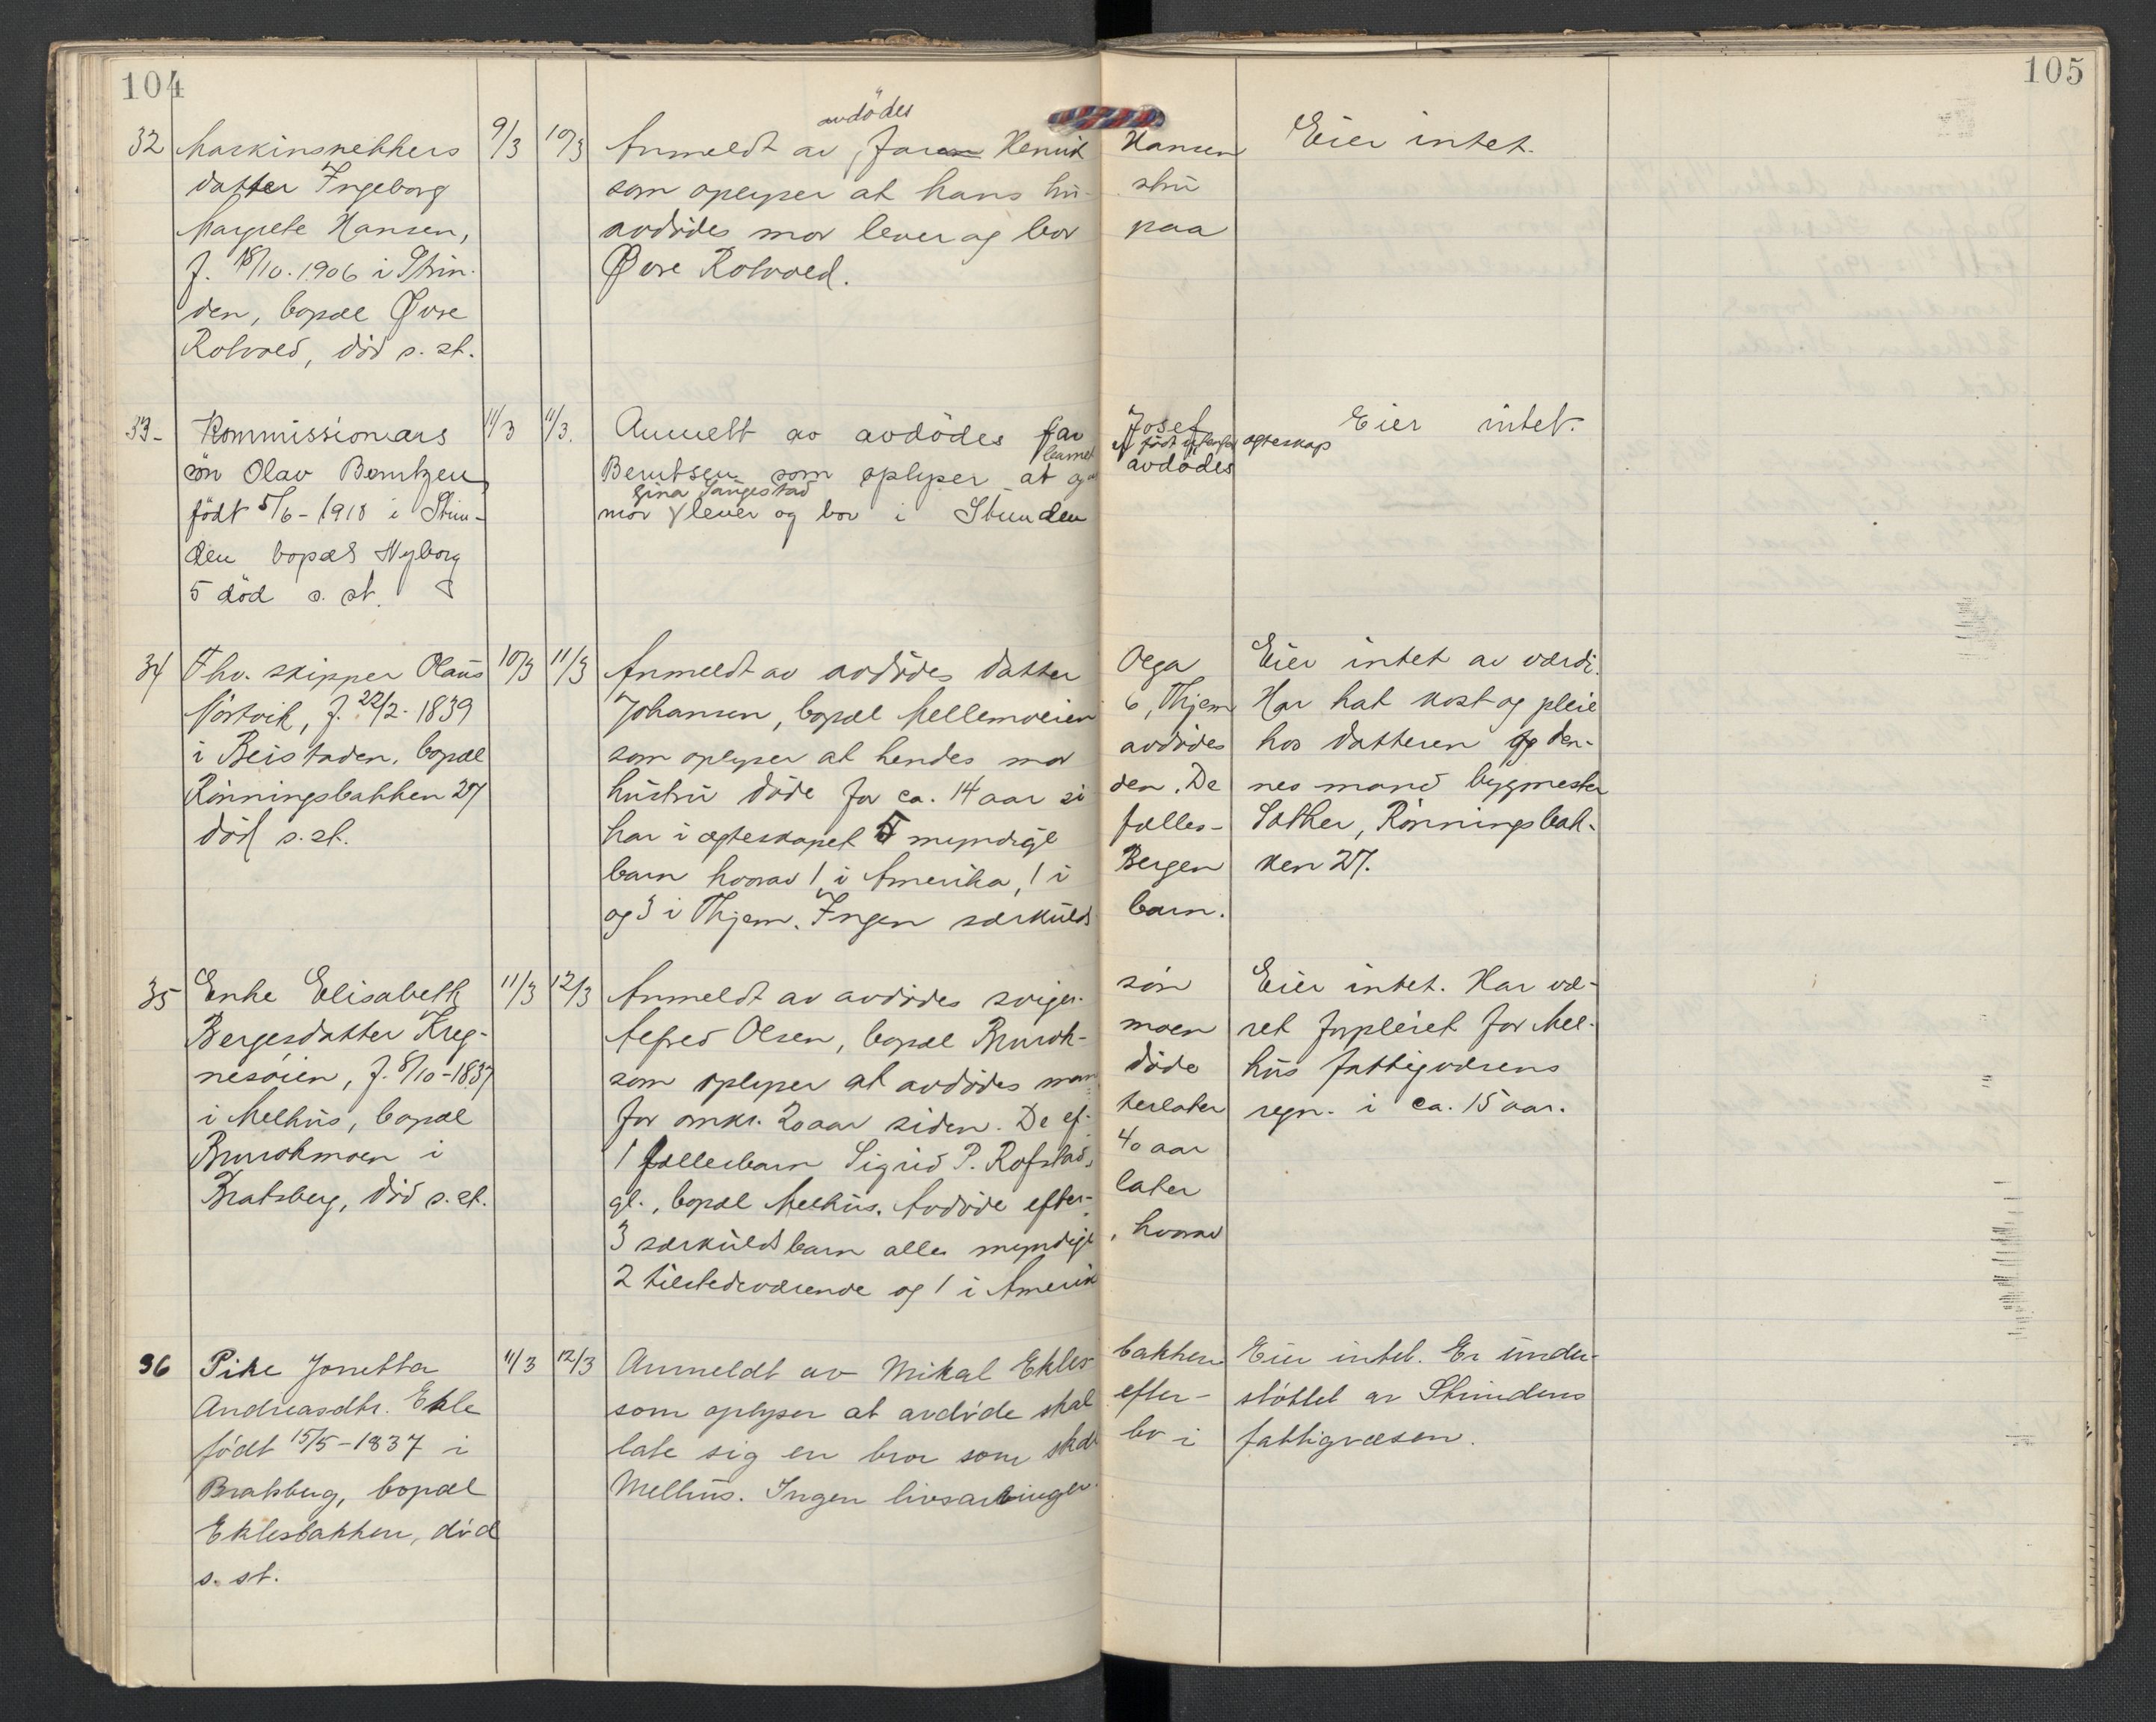 104
105
32 Maskinsnekkers 9/3 10/3 Anmeldt av avdødes far Henrik Hansen Eier intet.
datter Ingeborg som oplyser at hans hu- stru
Margrete Hansen, avdødes mor lever og bor paa
f. 18/10.1906 i Strin- Øvre Rotvold.
den, bopæl Øvre
Rotvold, død s. st.
33- Kommissionærs 11/3 11/3. Anmelt av avdødes far Josef Eier intet.
søn Olav Berntzen, Berntsen som oplyser at avdødes
barnet er født ægteskap
født 5/6-1918 i Strin- mor Gina lever og bor i Strinden
den bopæl Nyborg
5 død s. st.
34 Fhv. skipper Olaus 10/3 11/3 Anmeldt av avdødes datter Olga Eier intet av værdi.
f. 22/2-1839 Johansen, bopæl Mellemveien 6, Thjem Har hat kost og pleie
i Beistaden, bopæl som oplyser at hendes mor avdødes hos datteren og den-
Rønningsbakken 27 hustru døde for ca. 14 aar si den. De nes mand bygmester
død s. st. har i ægteskapet 5 myndige fælles- Sæther, Rønningsbak-
barn hvorav 1 i Amerika, 1 i Bergen ken 27.
og 3 i Thjem. Ingen særkulds barn.
35 Enke Elisabeth 11/3 12/3 Anmeldt av avdødes sviger- søn Eier intet. Har væ-
Bergesdatter Kreg- Alfred Olsen, bopæl Brurok- moen ret forpleiet for Mel-
nesøien, f. 8/10-1837 som oplyser at avdødes man døde hus fattigvæsens
i Melhus, bopæl for omkr. 20 aar siden. De ef- terlater regn. i ca. 15 aar.
Brurokmoen i 1 fællesbarn Sigrid P. Rofstad, 40 aar
Bratsberg, død s. st. gl., bopæl Melhus. Avdøde efter- later
3 særkuldsbarn alle myndige, hvorav
2 tilstedeværende og 1 i Amerik
36 Pike Jonetta 11/3 12/3 Anmeldt av Mikal Ekles bakken Eier intet. Er under-
Andreasdtr. Ekle som oplyser at avdøde skal efter- støttet av Strindens
født 15/5-1837 i late sig en bror som skal bo i fattigvæsen.
Bratsberg, bopæl Melhus. Ingen livsarvinger.
Eklesbakken, død
s. st.